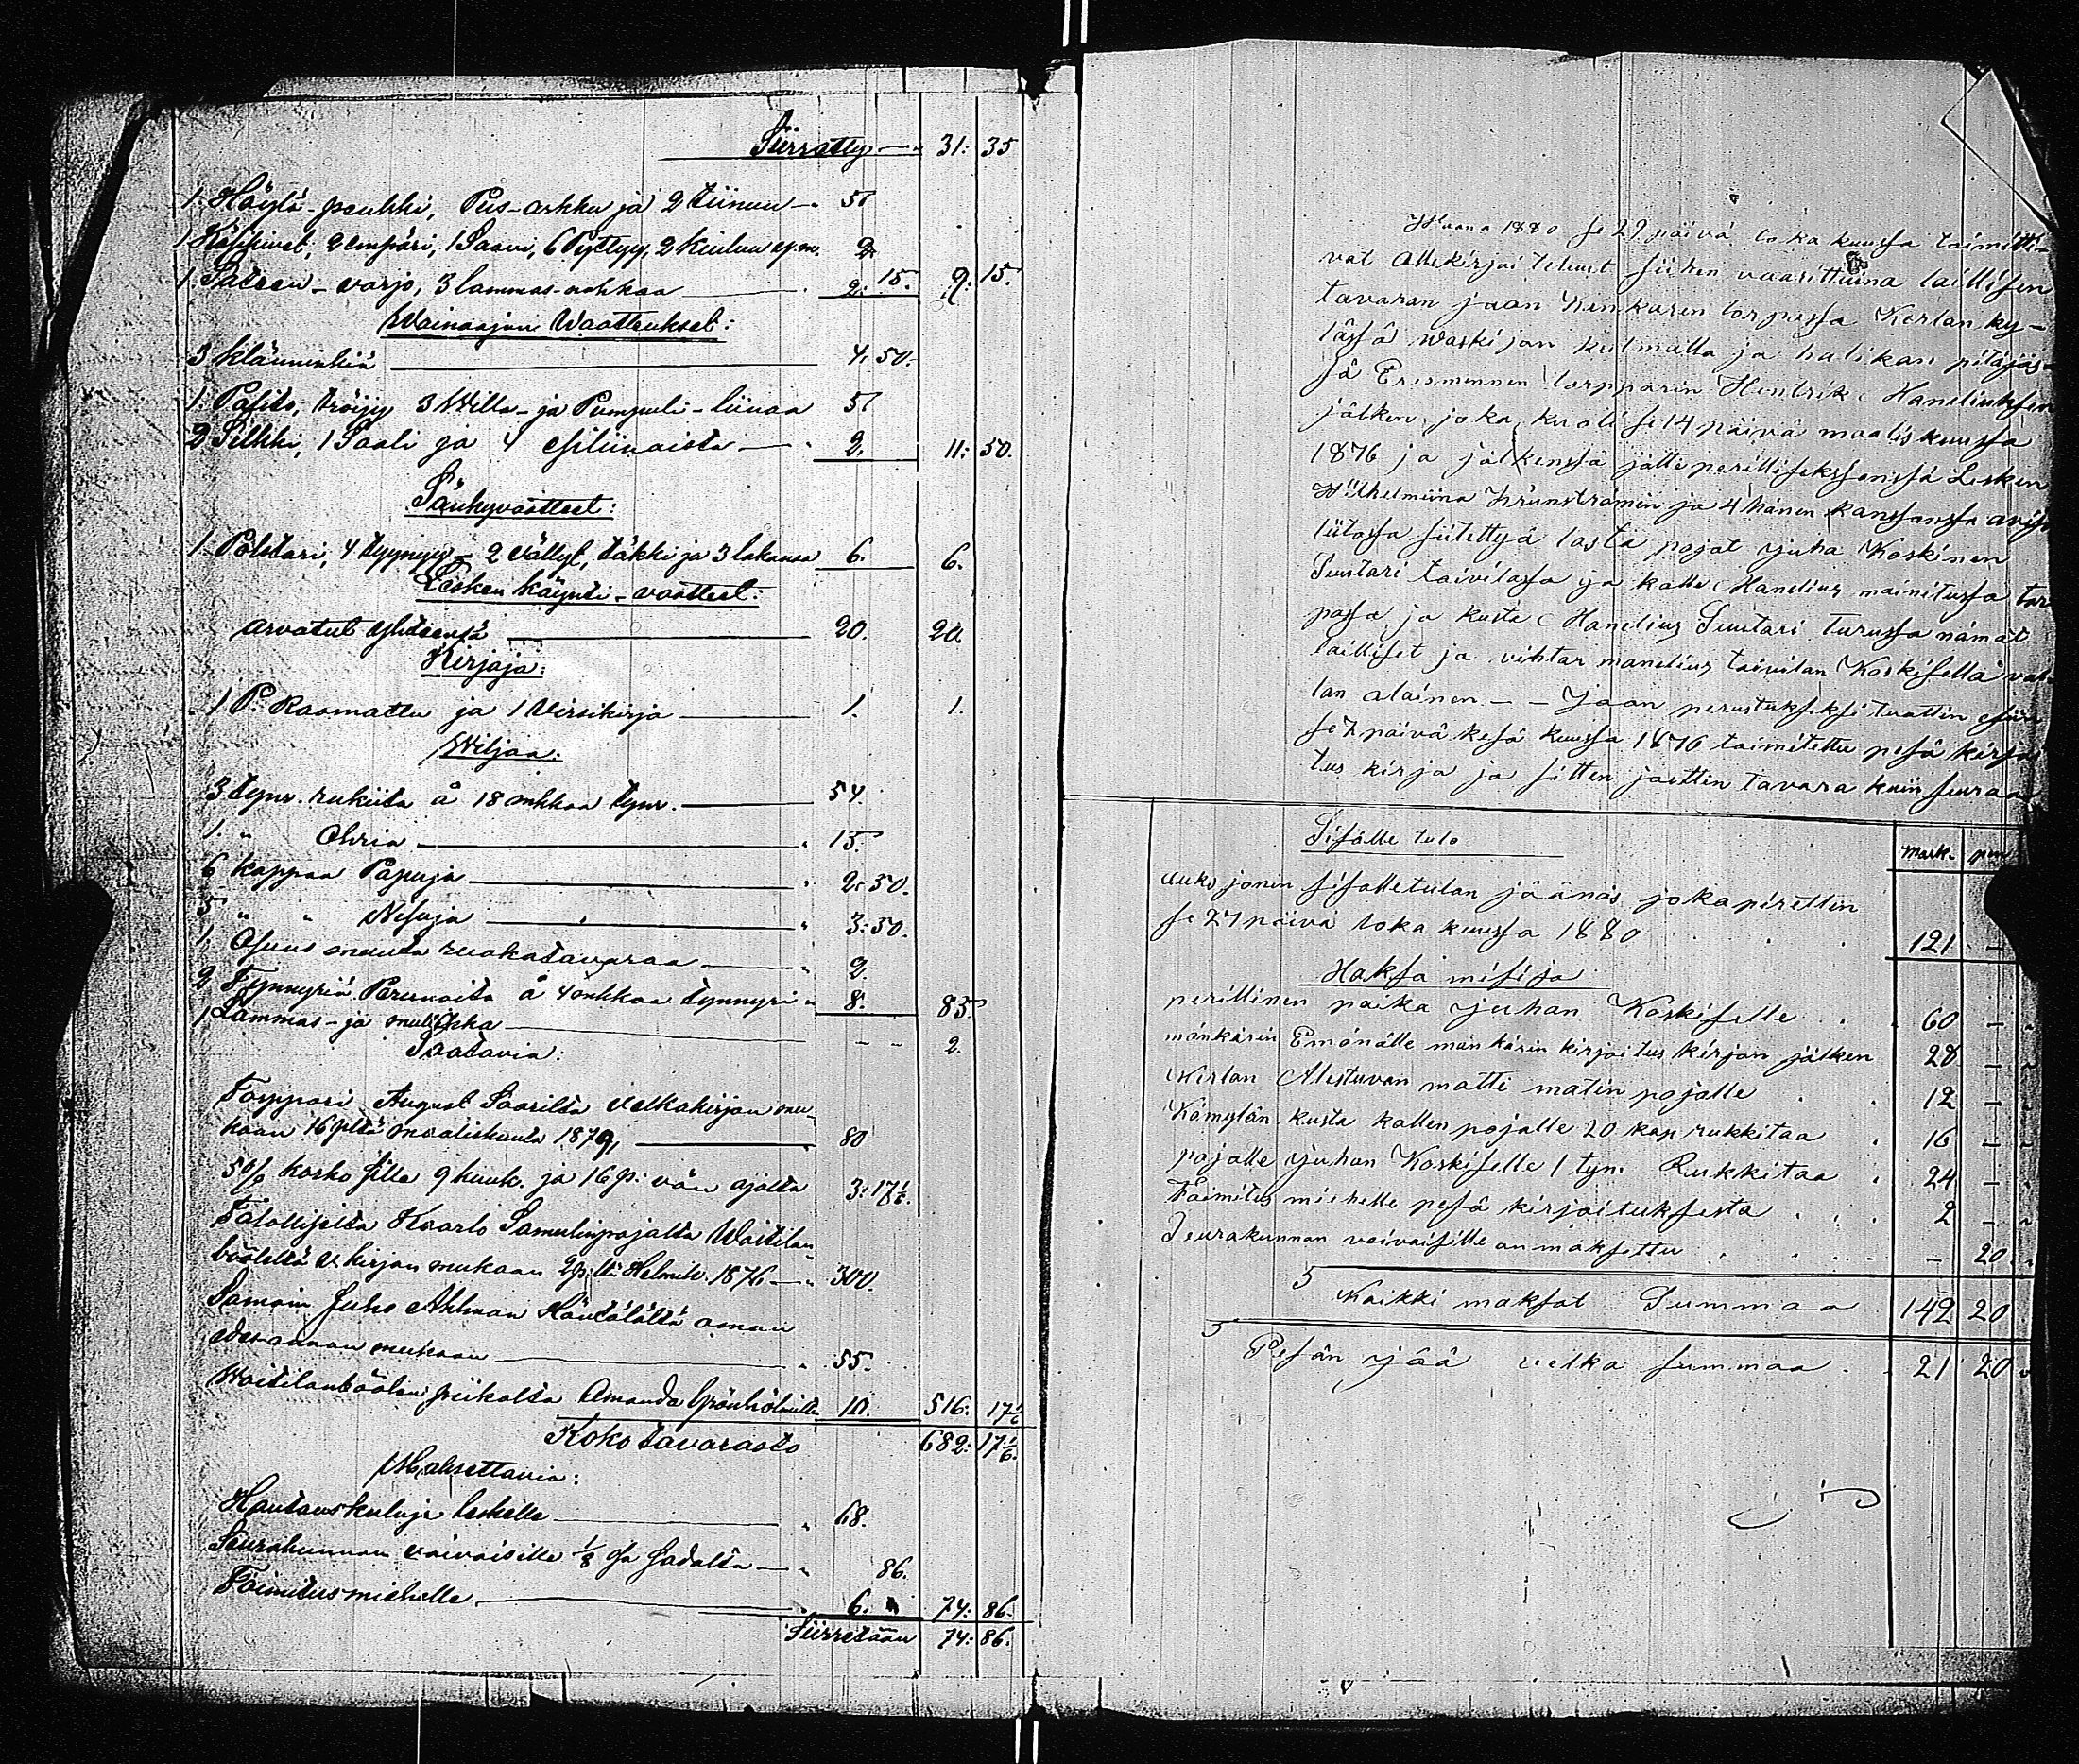 Siirretty — " 31: 35
1. Höylä-penkki, Pus-arkku ja 2 tiinuu — " 5
1 Käsikivet, 2 empäri, 1 Saavi, 6 Pyttyy, 2 kiuluu y.m. 2.
1. Sateen-varjo, 3 lammas-nahkaa — 2: 15. 9: 15.
Wainaajan Waatteukset:
3 Kläninkiä — 4, 50.
1. Pafito, tröijy 3 Willa- ja Pumpuli-liinaa 5
2 Silkki, 1 Saali ja 4 esiliinaista — " 2. 11: 50.
Sänkyvaatteet:
1 Polstari, 4 tyynyy - 2 vällyt, täkki ja 3 lakanaa 6. 6.
Lesken käynti-vaatteet:
arvatut yhteensä — 20. 20.
Kirjoja:
1 P. Raamattu ja 1 Virsikirja — 1. 1.
Wiljaa:
3 tynr. rukiita á 18 mkkaa tynr. — 54.
1. " Ohria — " 15.
6 kappaa Papuja — " 2: 50.
5 " " Nisuja — " 3: 50.
1. Osuus muuta ruokatavaraa — " 2.
2 Tynnyriä Perunoita á 4 mkkaa tynnyri " 8. 85.
1 Lammas- ja — - - 2.
Saatavia:
Torppari August Saarilta velkakirjan mu-
kaan 16 pltä maaliskuuta 1879, — " 80
5 % korko sille 9 kuuk. ja 16 p: vän ajalta 3: 17 1/6.
Talollisilta Kaarlo Samulinpojalta Waitilan-
böölistä v. kirjan mukaan 2 p:ltä Helmik. 1876 — " 300.
Samoin Juho Ahlman Häntälältä oman
edes-annan mukaan — " 55.
Waitilanböölen piikalta Amanda Grönholmilta 10. 516. 17 1/6
Koko tavarasto 682: 17 1/6.
Maksettavia:
Hautauskuluja leskelle — " 68.
Seurakunnan vaivaisille 1/8 osa sadalta — " 86.
Toimitusmiehelle — " 6. 74: 86.
Siirretään 74: 86.
Wuona 1880 se 29 päivä loka kuussa toimitti-
vat allekirjoitelunt siihen vaarittuina laillisen
tavaran jaan torpassa Kerlan ky-
lässä waskijan kulmalla ja halikan pitäjäs-
sä Entsmennen torpparin Hentrik Maneliuksen
jälken, joka kuoli se 14 päivä maaliskuussa
1876 ja jälkensä jätti perillisekssensä Lesken
Wilhelmiina ja 4 hänen kanssansa avijo
liitossa siitettyä lasta pojat Juha Koskinen
Suutari taivilassa ja kalle Manelius mainitussa tor
passa ja kusta Manelius Suutari Turussa nämät
lailliset ja vihtar manelius taivilan Koskisella val
lan alainen. — — Jaan perustukseksi tuottin esiin
se 7 päivä kesä kuussa 1876 toimitettu pesä kirjoi
tus kirja ja sitten jaettin tavara kuin seuraa
Sisälle tulo Mark. pen
auks jonin sisälletulan jäänös joka pirettin
se 27 päivä loka kuussa 1880 . . . 121 —
Maksa misija
perillinen paika Juhan Koskiselle . . 60 — "
mänkärin Emänälle män kärin kirjoitus kirjan jälken 28 — "
Kerlan Alestuvan matti matin pojalle . . 12 — "
Kämylän kusta kallen pojalle 20 kap rukkitaa . 16 — "
pojalle Juhan Koskiselle 1 tyn. Rukkitaa . 24 — "
Toimitus miehelle pesä kirjoituksesta . . . 2 — "
Seurakunnan vaivaisille on maksettu . . . — 20 "
Kaikki maksot Summaa 142 20
Pesän jää velka summaa . . 21 20 "